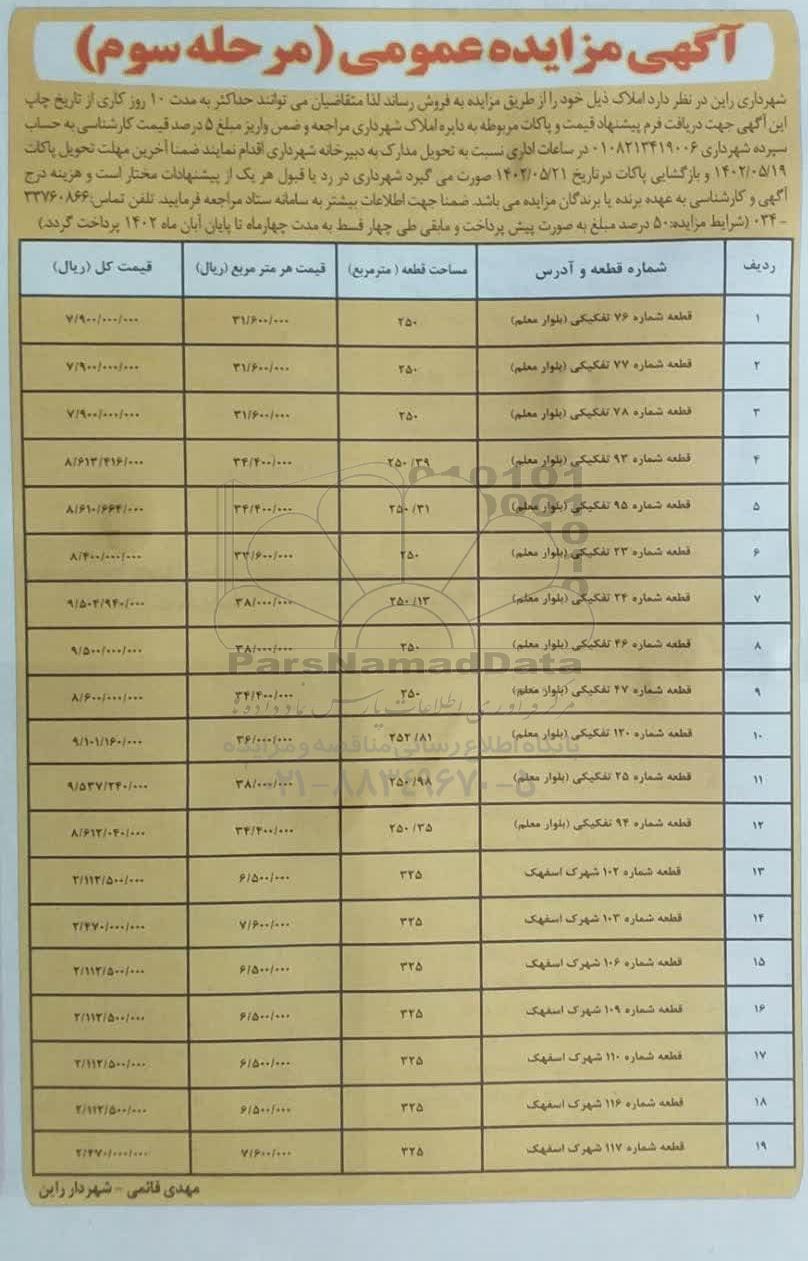 آگهی مزایده عمومی (مرحله سوم)
شهرداری راین در نظر دارد املاک ذیل خود را از طریق مزایده به فروش رساند لذا متقاضیان می توانند حداکثر به مدت ۱۰ روز کاری از تاریخ چاپ
این آگهی جهت دریافت فرم پیشنهاد قیمت و پاکات مربوطه به دایره املاک شهرداری مراجعه و ضمن واریز مبلغ ۵ درصد قیمت کارشناسی به حساب
سپرده شهرداری ۰۱۰۸۲۱۳۴۱۹۰۰۶ در ساعات اداری نسبت به تحویل مدارک به دبیرخانه شهرداری اقدام نمایند ضمنا آخرین مهلت تحویل پاکات
۱۴۰۲/۰۵/۱۹ و بازگشایی پاکات درتاریخ ۱۴۰۲/۰۵/۲۱ صورت می گیرد شهرداری در رد یا قبول هر یک از پیشنهادات مختار است و هزینه درج
آگهی و کارشناسی به عهده برنده یا برندگان مزایده می باشد. ضمنا جهت اطلاعات بیشتر به سامانه ستاد مراجعه فرمایید. تلفن تماس: ۳۳۷۶۰۸۶۶
-۰۳۴ (شرایط مزایده: ۵۰ درصد مبلغ به صورت پیش پرداخت و مابقی طی چهار قسط به مدت چهارماه تا پایان آبان ماه ۱۴۰۲ پرداخت گردد.)
ردیف شماره قطعه و آدرس مساحت قطعه (مترمربع) قیمت هر متر مربع (ریال) قیمت کل (ریال)
۱ قطعه شماره ۷۶ تفکیکی (بلوار معلم) ۲۵۰ ۳۱/۶۰۰/۰۰۰ ۷/۹۰۰/۰۰۰/۰۰۰
۲ قطعه شماره ۷۷ تفکیکی (بلوار معلم) ۲۵۰ ۳۱/۶۰۰/۰۰۰ ۷/۹۰۰/۰۰۰/۰۰۰
۳ قطعه شماره ۷۸ تفکیکی (بلوار معلم) ۲۵۰ ۳۱/۶۰۰/۰۰۰ ۷/۹۰۰/۰۰۰/۰۰۰
۴ قطعه شماره ۹۳ تفکیکی (بلوار معلم) ۲۵۰/۳۹ ۳۴/۴۰۰/۰۰۰ ۸/۶۱۳/۴۱۶/۰۰۰
۵ قطعه شماره ۹۵ تفکیکی (بلوار معلم) ۲۵۰/۳۱ ۳۴/۴۰۰/۰۰۰ ۸/۶۱۰/۶۶۴/۰۰۰
۶ قطعه شماره ۲۳ تفکیکی (بلوار معلم) ۲۵۰ ۳۳/۶۰۰/۰۰۰ ۸/۴۰۰/۰۰۰/۰۰۰
۷ قطعه شماره ۲۴ تفکیکی (بلوار معلم) ۲۵۰/۱۳ ۳۸/۰۰۰/۰۰۰ ۹/۵۰۴/۹۴۰/۰۰۰
۸ قطعه شماره ۴۶ تفکیکی (بلوار معلم) ۲۵۰ ۳۸/۰۰۰/۰۰۰ ۹/۵۰۰/۰۰۰/۰۰۰
۹ قطعه شماره ۴۷ تفکیکی (بلوار معلم) ۲۵۰ ۳۴/۴۰۰/۰۰۰ ۸/۶۰۰/۰۰۰/۰۰۰
۱۰ قطعه شماره ۱۲۰ تفکیکی (بلوار معلم) ۲۵۲/۸۱ ۳۶/۰۰۰/۰۰۰ ۹/۱۰۱/۱۶۰/۰۰۰
۱۱ قطعه شماره ۲۵ تفکیکی (بلوار معلم) ۲۵۰/۹۸ ۳۸/۰۰۰/۰۰۰ ۹/۵۳۷/۲۴۰/۰۰۰
۱۲ قطعه شماره ۹۴ تفکیکی (بلوار معلم) ۲۵۰/۳۵ ۳۴/۴۰۰/۰۰۰ ۸/۶۱۲/۰۴۰/۰۰۰
۱۳ قطعه شماره ۱۰۲ شهرک اسفهک ۳۲۵ ۶/۵۰۰/۰۰۰ ۲/۱۱۲/۵۰۰/۰۰۰
۱۴ قطعه شماره ۱۰۳ شهرک اسفهک ۳۲۵ ۷/۶۰۰/۰۰۰ ۲/۴۷۰/۰۰۰/۰۰۰
۱۵ قطعه شماره ۱۰۶ شهرک اسفهک ۳۲۵ ۶/۵۰۰/۰۰۰ ۲/۱۱۲/۵۰۰/۰۰۰
۱۶ قطعه شماره ۱۰۹ شهرک اسفهک ۳۲۵ ۶/۵۰۰/۰۰۰ ۲/۱۱۲/۵۰۰/۰۰۰
۱۷ قطعه شماره ۱۱۰ شهرک اسفهک ۳۲۵ ۶/۵۰۰/۰۰۰ ۲/۱۱۲/۵۰۰/۰۰۰
۱۸ قطعه شماره ۱۱۶ شهرک اسفهک ۳۲۵ ۶/۵۰۰/۰۰۰ ۲/۱۱۲/۵۰۰/۰۰۰
۱۹ قطعه شماره ۱۱۷ شهرک اسفهک ۳۲۵ ۷/۶۰۰/۰۰۰ ۲/۴۷۰/۰۰۰/۰۰۰
مهدی قائمی - شهردار راین
ParsNamadData
مرکز فرآوری اطلاعات پارس نماد داده ها
پایگاه اطلاع رسانی مناقصه و مزایده
۰۲۱-۸۸۳۴۹۶۷۰-۵